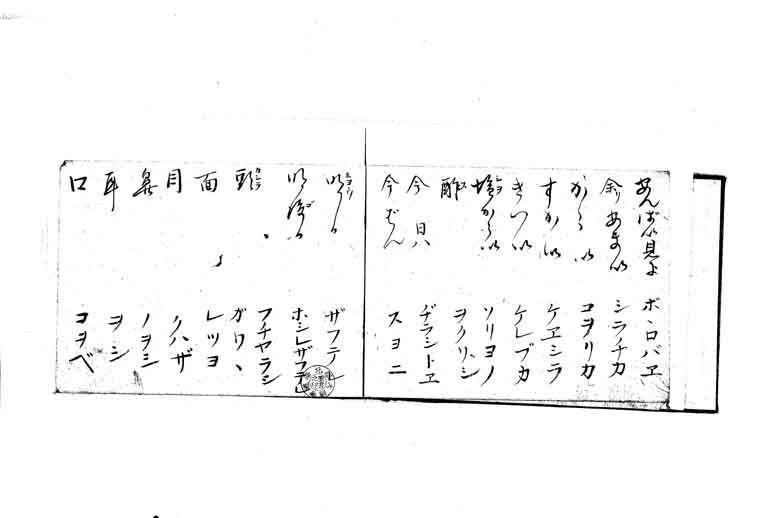 あんばい見よ ボヽロバヱ
余りあまい シラチカ
からい コヲリカ
すかい ケヱシラ
きつい ケレブカ
塩からい ソリヨノ
酢 ヲクリシ
今日 ヂラシトヱ
今ばん スヨニ
ザフテレ
ホシレザフテレ
頭 フチヤラシ
ガワヽ
面 レツヨ
目 クハザ
鼻 ノヲシ
耳 ヲシ
口 コヲベ